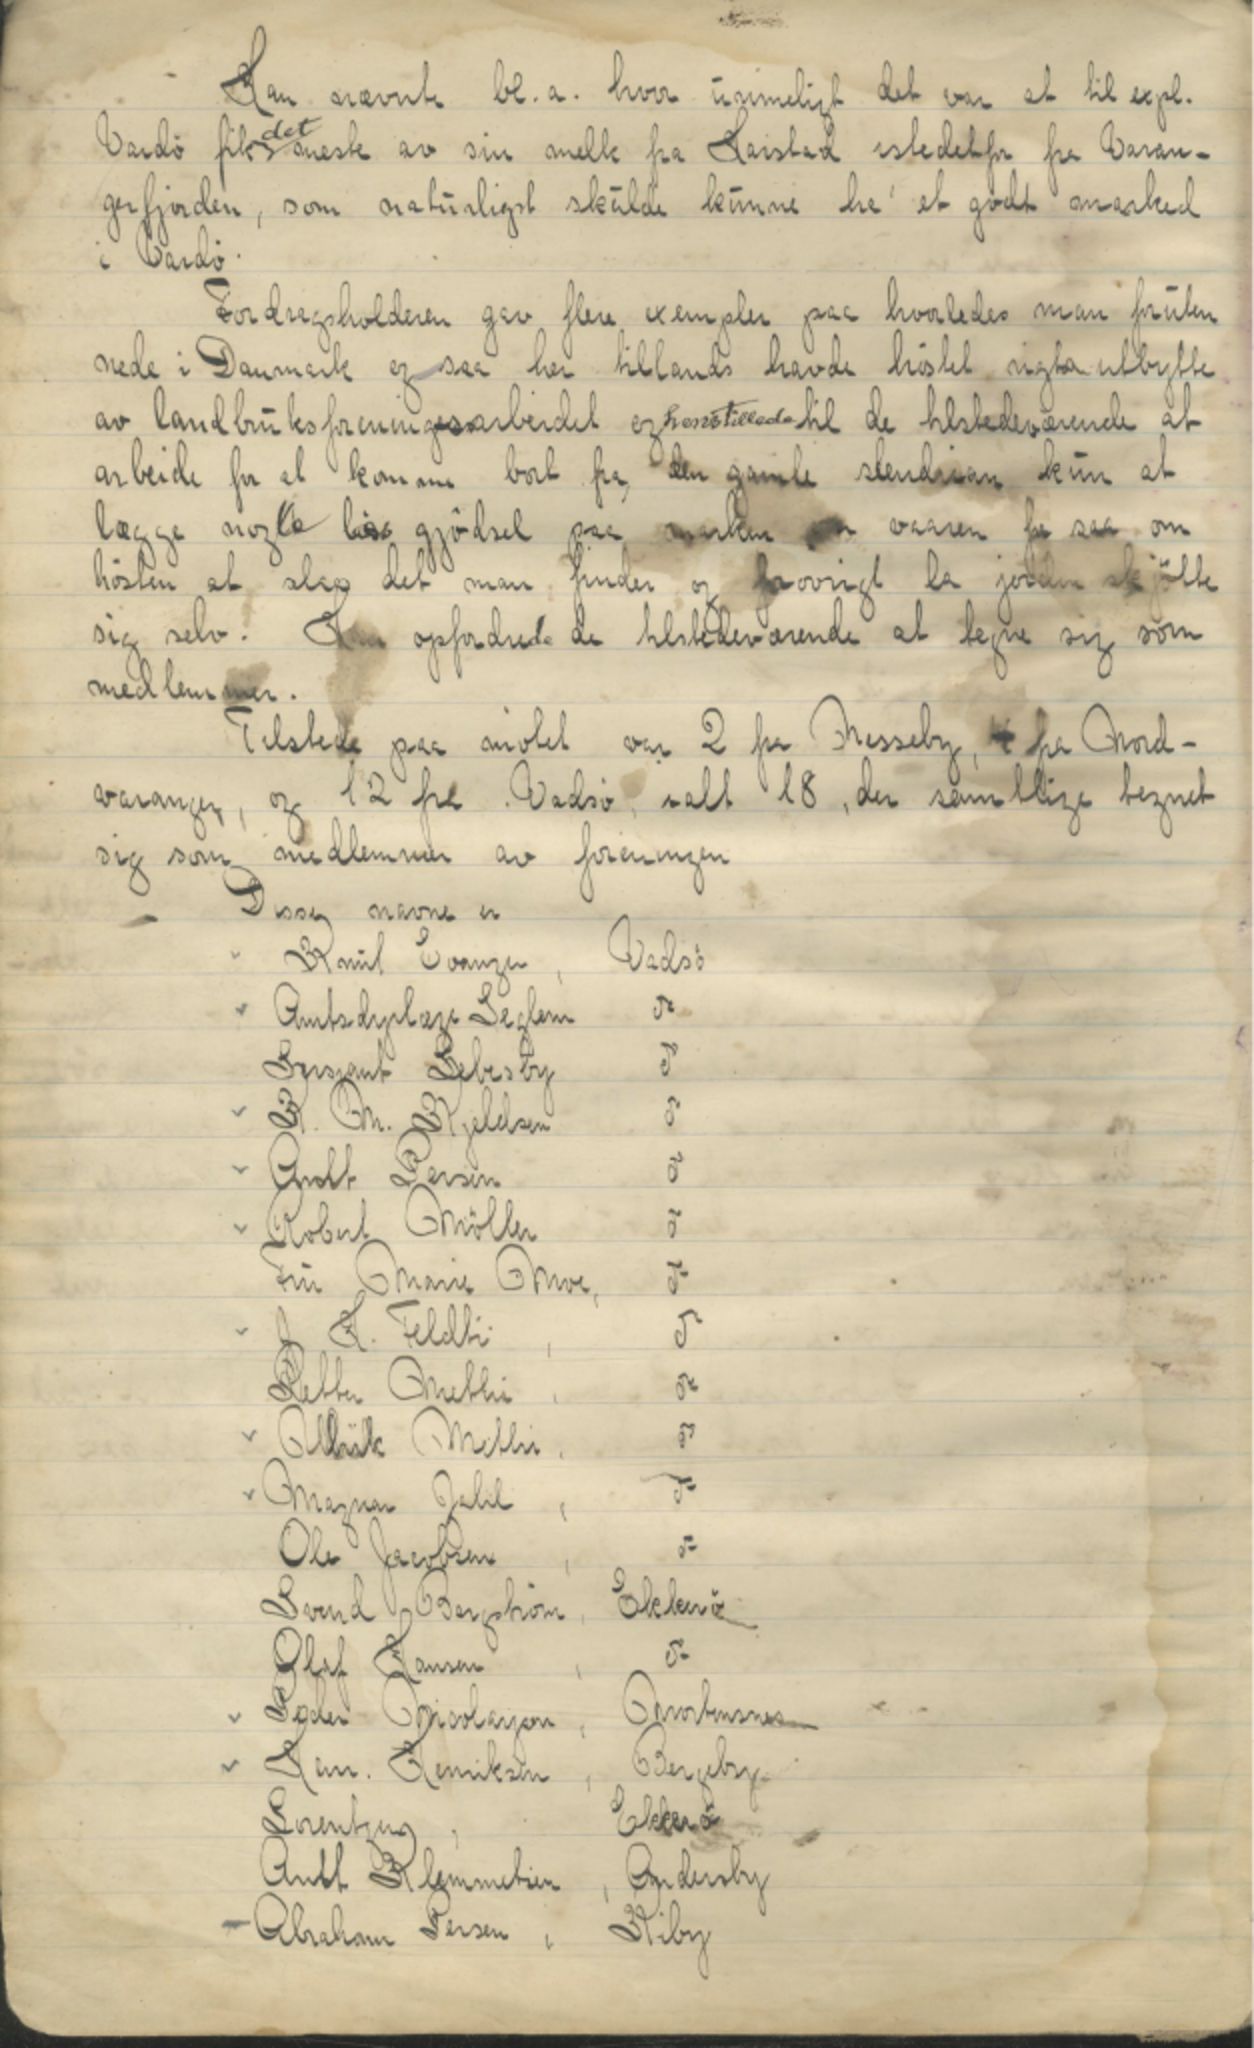 Han nævnte bl. a. hvor urimeligt det var at til expl.
Vardö fik det meste av sin melk fra Harstad istedetfor fra Varan-
gerfjorden, som naturligst skulde kunne ha et godt marked
i Vardö.
Fordragsholderen gav flere exempler paa hvorledes man foruten
nede i Danmark og saa her tillands havde höstet rigta utbytte
av landbruksforeningsarbeidet og henstillede til de tilstedeværende at
arbeide for at komme bort fra den gamle slendrian kun at
lægge nogle lass gjödsel paa marken om vaaren for saa om
hösten at slaa det man finder og forövrigt la jorden skjötte
sig selv. Han opfordrede de tilstedeværende at tegne sig som
medlemmer.
Tilstede paa mötet var 2 fra Nesseby, 4 fra Nord-
varanger, og 12 fra Vadsö, ialt 18, der samtlige tegnet
sig som medlemmer av foreningen
Disses navne er
Knut Evanger, Vadsö
Amtsdyrlæge Leglem do
Sersjant Lebesby do
K. M. Kjeldsen do
Andt Persen do
Robert Möller do
Fru Marie Moe, do
J H. Feldti, do
Petter Methi, do
Ulrik Methi, do
Magnar Jahl, do
Ole Jacobsen, do
Svend Bergström, Ekkerö
Olaf Hansen, do
Peder Nicolaysen, Mortensnes
Han. Henriksen, Bergeby
Lorentzen, Ekkerö
Antt Klemmetsen, Andersby
Abraham Persen, Kiby